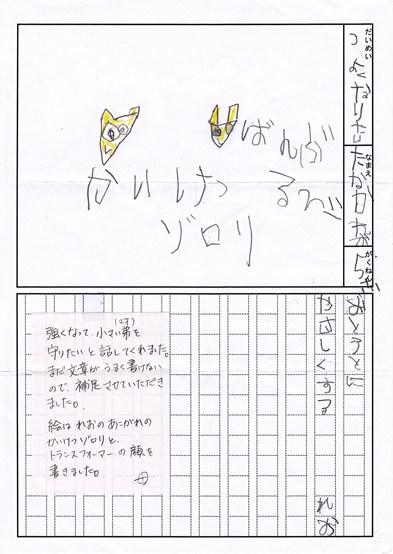 だいめい
つよくなりたい
なまえ
たなかれお
がくねん
5さい
ばんぶ
るび
かいけつ
ゾロリ
おとうとに
やさしくする
れお
強くなって 小さい弟を
守りたいと話してくれました。
まだ文章がうまく書けない
ので、補足させていただき
ました。
絵は れおのあこがれの
かいけつゾロリと、
トランスフォーマーの顔を
書きました。
母